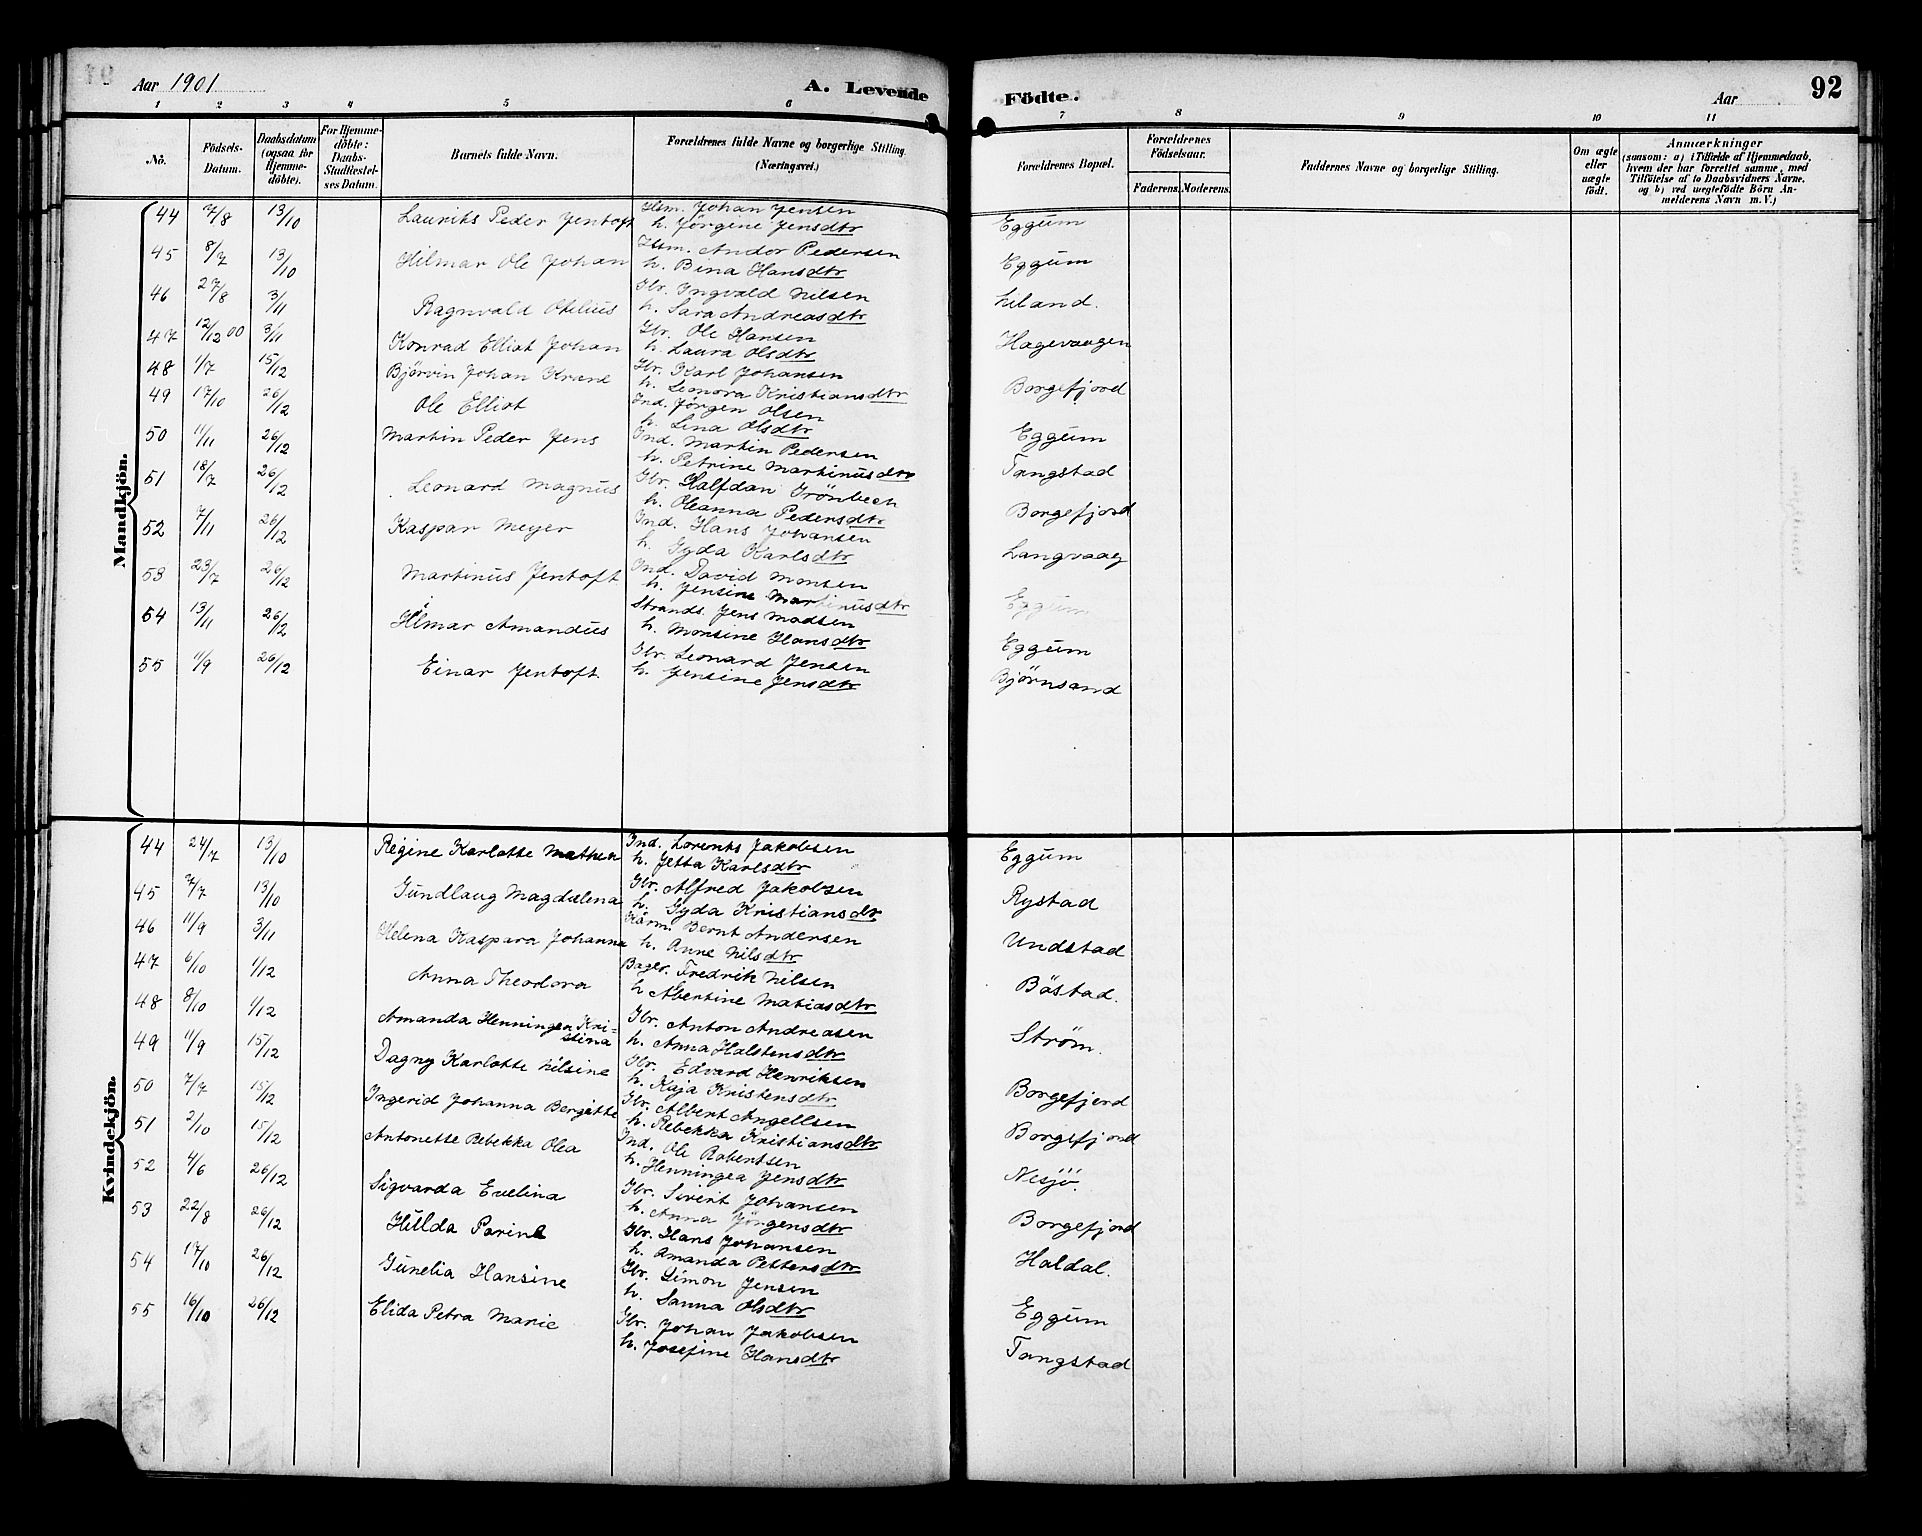 Aar 1901
A. Levende
Födte.
Aar
92
1 2 3 4 5 6 7 8 9 10 11
No.
Födsels-Datum.
Daabsdatum (ogsaa for Hjemme-döbte).
For Hjemme-döbte: Daabs-Stadfæstel-ses Datum.
Barnets fulde Navn.
Forældrenes fulde Navne og borgerlige Stilling. (Næringsvei.)
Forældrenes Bopæl.
Forældrenes Födselsaar.
Faderens. Moderens.
Faddernes Navne og borgerlige Stilling.
Om ægte eller uægte födt.
Anmærkninger
(saasom: a) i Tilfælde af Hjemmedaab, hvem der har forrettet samme, med Tilföielse af to Daabsvidners Navne, og b) ved uægtefödte Börn An-melderens Navn m. V.)
Mandkjön.
44 7/8 13/10 Lauriks Peder Jentoft Hsm. Johan Jensen Eggum
h. Jörgine Jensdtr
45 8/7 13/10 Hilmar Ole Johan Hsm. Andor Pedersen Eggum
h. Bina Hansdtr
46 27/8 3/11 Ragnvald Otilius Gbr. Ingvald Nilsen Liland.
h. Sara Andreasdtr
47 12/12 00 3/11 Konrad Elliot Johan Gbr. Ole Hansen Hagevaagen
h. Laura Olsdtr
48 1/7 15/12 Björvin Johan Krane Gbr. Karl Johansen Borgefjord
h. Leonora Kristiansdtr
49 17/10 26/12 Ole Elliot Ind. Jörgen Olsen Eggum
h. Lina Olsdtr
50 11/11 26/12 Martin Peder Jens Ind. Martin Pedersen Tangstad
h. Petrine Martinusdtr
51 18/7 26/12 Leonard Magnus Gbr. Halfdan Grönbech Borgefjord
h. Oleanna Pedersdtr
52 7/11 26/12 Kaspar Meyer Ind. Hans Johansen Langvaag
h. Gyda Karlsdtr
53 23/7 26/12 Martinus Jentoft Ind. David Monsen Eggum
h. Jensine Martinusdtr
54 13/11 26/12 Hilmar Amandus Strands. Jens Madsen Eggum
h. Monsine Hansdtr
55 11/9 26/12 Einar Jentoft Gbr. Leonard Jensen Björnsand
h. Jensine Jensdtr
Kvindekjön.
44 24/7 13/10 Regine Karlotte Mathea Ind. Lorents Jakobsen Eggum
h. Jetta Karlsdtr
45 7/7 13/10 Gundlaug Magdalena Gbr. Alfred Jakobsen Rystad
h. Gyda Kristiansdtr
46 11/9 3/11 Helena Kaspara Johanna Kårm. Bernt Andersen Undstad
h. Anne Nilsdtr
47 6/10 1/12 Anna Theodora Bager. Fredrik Nilsen Böstad.
h Abertine Matiasdtr
48 8/10 1/12 Amanda Henningea Kri-stina Gbr. Anton Andreasen Ström.
h. Anna Halstensdtr
49 11/9 15/12 Dagny Karlotte Nilsine Gbr. Edvard Henriksen Borgefjord
h. Kaja Kristensdtr
50 7/7 15/12 Ingerid Johanna Bergitte Gbr. Albert Angellsen Borgefjord
h. Rebekka Kristiansdtr
51 2/10 15/12 Antonette Rebekka Olea Ind. Ole Robertsen Nesjö.
h. Henningea Jensdtr
52 4/6 26/12 Sigvarda Evelina Gbr. Sivert Johansen Borgefjord
h. Anna Jörgensdtr
53 22/8 26/12 Hillda Parine Gbr. Hans Johansen Haldal.
h. Amanda Pettersdtr
54 17/10 26/12 Gunelia Hansine Gbr. Simon Jensen Eggum
h. Sanna Olsdtr
55 16/10 26/12 Elida Petra Marie Gbr. Johan Jakobsen Tangstad
h. Josefine Hansdtr